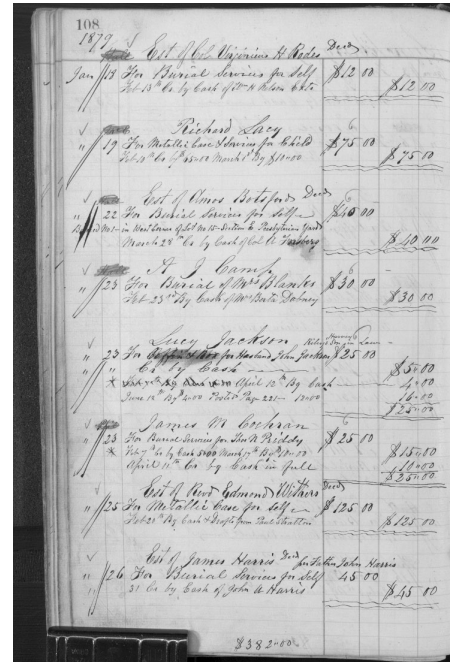 108
1879
Est of Col Virginius H Rodes Decd
Jan 18 For Burial Services for Self $12 00
Feb 13th Cr by Cash of Wm H Nelson Exto
$12 00
Richard Lacy
" 19 For Metallic Case & Services for Child $75 00
Feb 10th Cr By $65.00 March By $10.00
$75 00
Est of Amos Botsford Decd
" 22 For Burial Services for Self $40 00
in West Corner of Lot No 15 Section Presbyterian Yard
March 28th Cr by Cash of Col A Forsberg
$40 00
A J Camp
" 23 For Burial of Mrs Blander $30 00
Feb 23rd By Cash of Mrs Berta Dabney
$30 00
Lucy Jackson
" 23 For Coffin & Box for Husband John Jackson $25 00
" Cr by Cash $5.00
April 12th By Cash 4.00
June 12th By $4.00 Posted Page 221 16.00
$25.00
James M Cochran
" 23 For Burial Services for Priddy $25 00
Feb 7th Cr by Cash 5.00 March 7th By $10.00 $15.00
April 11th Cr by Cash in full 10.00
$25.00
Est of Revd Edmond Withers Decd
" 25 For Metallic Case for Self $125 00
Feb 28th By Cash & Drafts from Paul Stratton
$125 00
Est of James Harris Decd per Father John Harris
" 26 For Burial Services for Self 45 00
" 31 Cr by Cash of John A Harris
$45 00
$382.00